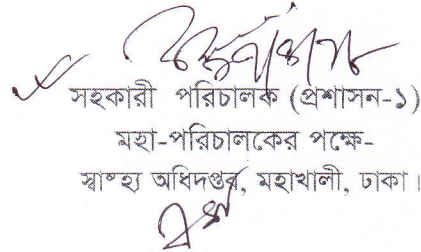 সহকারী পরিচালক (প্রশাসন-১)
মহা-পরিচালকের পক্ষে-
স্বাস্থ্য অধিদপ্তর, মহাখালী, ঢাকা।